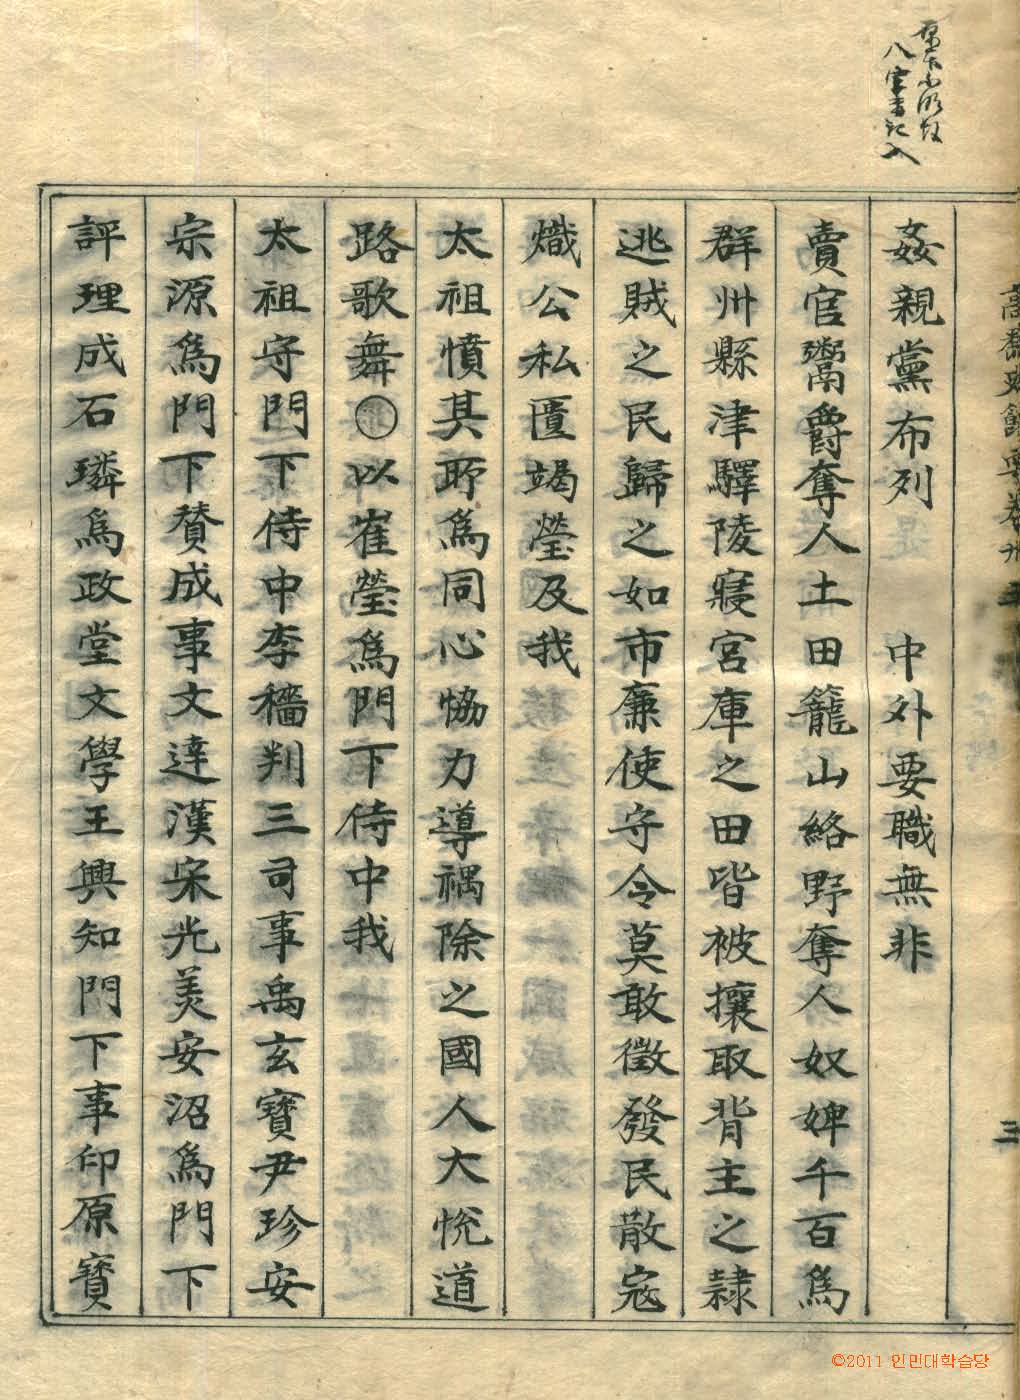 八字書記入
姦親黨布列　中外要職無非
賣官鬻爵奪人土田籠山絡野奪人奴婢千百爲
群州縣津驛陵寢宮庫之田皆被攘取背主之隷
逃賊之民歸之如市廉使守令莫敢徵發民散寇
熾公私匱竭瑩及我
太祖憤其所爲同心恊力導禑除之國人大悅道
路歌舞〇以崔瑩爲門下侍中我
太祖守門下侍中李穡判三司事禹玄寶尹珍安
宗源爲門下賛成事文達漢宋光美安沼爲門下
評理成石璘爲政堂文學王興知門下事印原寶
三
©2011 인민대학습당